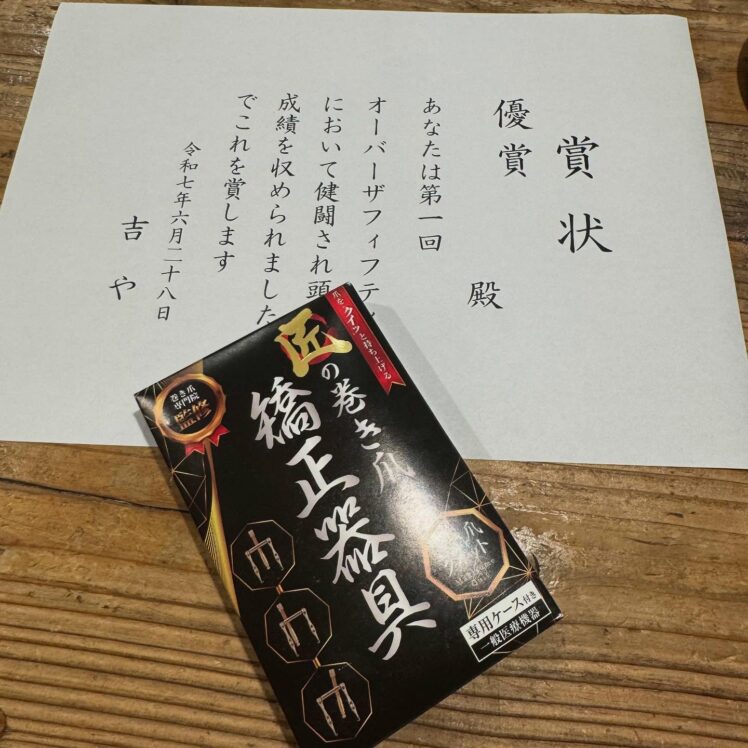 賞状
優賞
殿
あなたは第一回
オーバーザフィフティ
において健闘され頭
成績を収められました
でこれを賞します
令和七年六月二十八日
吉や
爪をクイッと持ち上げる
匠の巻き爪
矯正器具
巻き爪
専門院
監修
専用ケース付き
一般医療機器